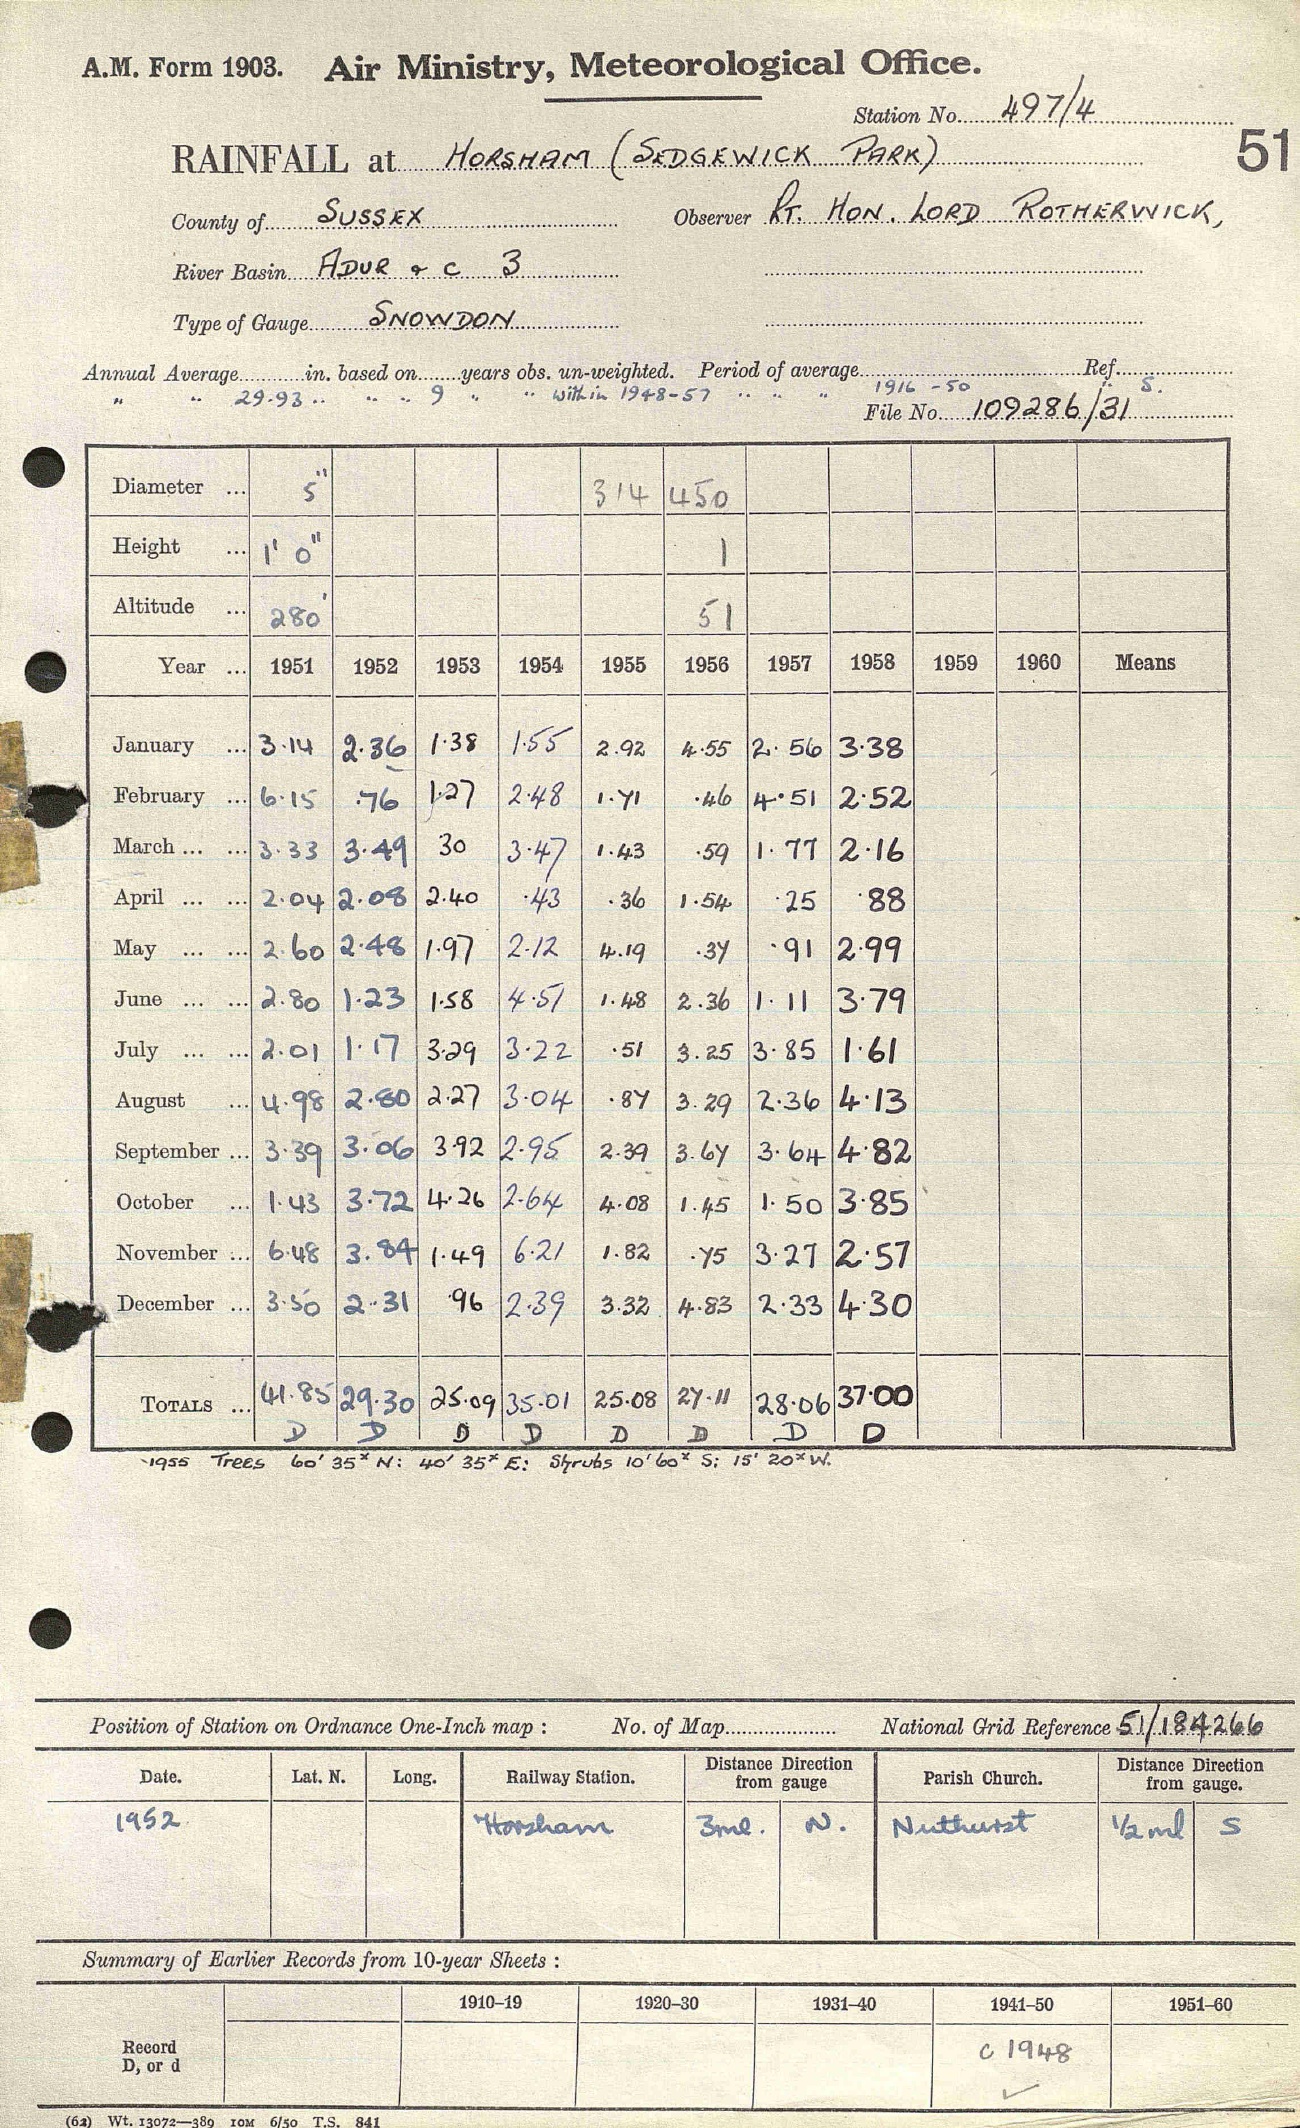 A.M. Form 1903. Air Ministry, Meteorological Office.
Station No. 497/4
51
RAINFALL at HORSHAM (SEDGEWICK PARK)
County of SUSSEX Observer RT. HON. LORD ROTHERWICK,
River Basin ADUR & C 3
Type of Gauge SNOWDON
Annual Average in. based on years obs. un-weighted. Period of average Ref.
" " 29.93 " " " 9 " " within 1948-57 " " " 1916-50 " S.
File No. 109286/31
Diameter ... 5" 314 450
Height ... 1' 0" 1
Altitude ... 280' 51
Year ... 1951 1952 1953 1954 1955 1956 1957 1958 1959 1960 Means
January ... 3.14 2.36 1.38 1.55 2.92 4.55 2.56 3.38
February ... 6.15 .76 1.27 2.48 1.71 .46 4.51 2.52
March ... ... 3.33 3.49 30 3.47 1.43 .59 1.77 2.16
April ... ... 2.04 2.08 2.40 .43 .36 1.54 .25 .88
May ... ... 2.60 2.48 1.97 2.12 4.19 .37 .91 2.99
June ... ... 2.80 1.23 1.58 4.51 1.48 2.36 1.11 3.79
July ... ... 2.01 1.17 3.29 3.22 .51 3.25 3.85 1.61
August ... 4.98 2.80 2.27 3.04 .87 3.29 2.36 4.13
September ... 3.39 3.06 3.92 2.95 2.39 3.67 3.64 4.82
October ... 1.43 3.72 4.26 2.64 4.08 1.45 1.50 3.85
November ... 6.48 3.84 1.49 6.21 1.82 .75 3.27 2.57
December ... 3.50 2.31 .96 2.39 3.32 4.83 2.33 4.30
TOTALS ... 41.85 29.30 25.09 35.01 25.08 27.11 28.06 37.00
D D D D D D D D
1955 Trees 60' 35x N: 40' 35x E: Shrubs 10' 60x S: 15' 20x W.
Position of Station on Ordnance One-Inch map : No. of Map National Grid Reference 51/184266
Date. Lat. N. Long. Railway Station. Distance Direction from gauge Parish Church. Distance Direction from gauge.
1952 Horsham 3ml. N. Nuthurst 1/2 ml S
Summary of Earlier Records from 10-year Sheets :
1910–19 1920–30 1931–40 1941–50 1951–60
Record D, or d c 1948 ✓
(62) Wt. 13072—389 10M 6/50 T.S. 841